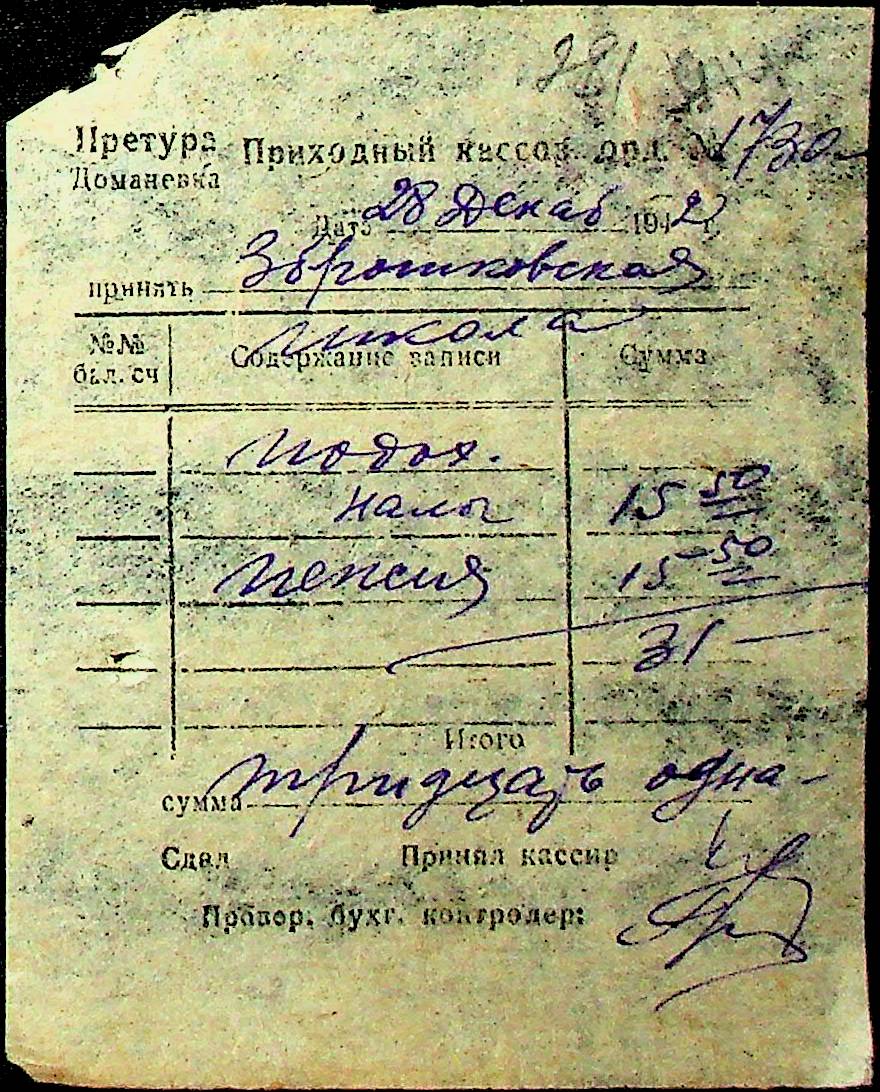 281
Претура Приходный кассов. орд. № 1730
Доманевка
Дата 28 Декаб 1942 г.
принять Зброшковская
школа
№№ бал. сч Содержание записи Сумма
подох.
налог 15 50
пенсия 15 50
31 —
Итого
сумма тридцать одна
Сдал Принял кассир
Провер. бухг. контролер: